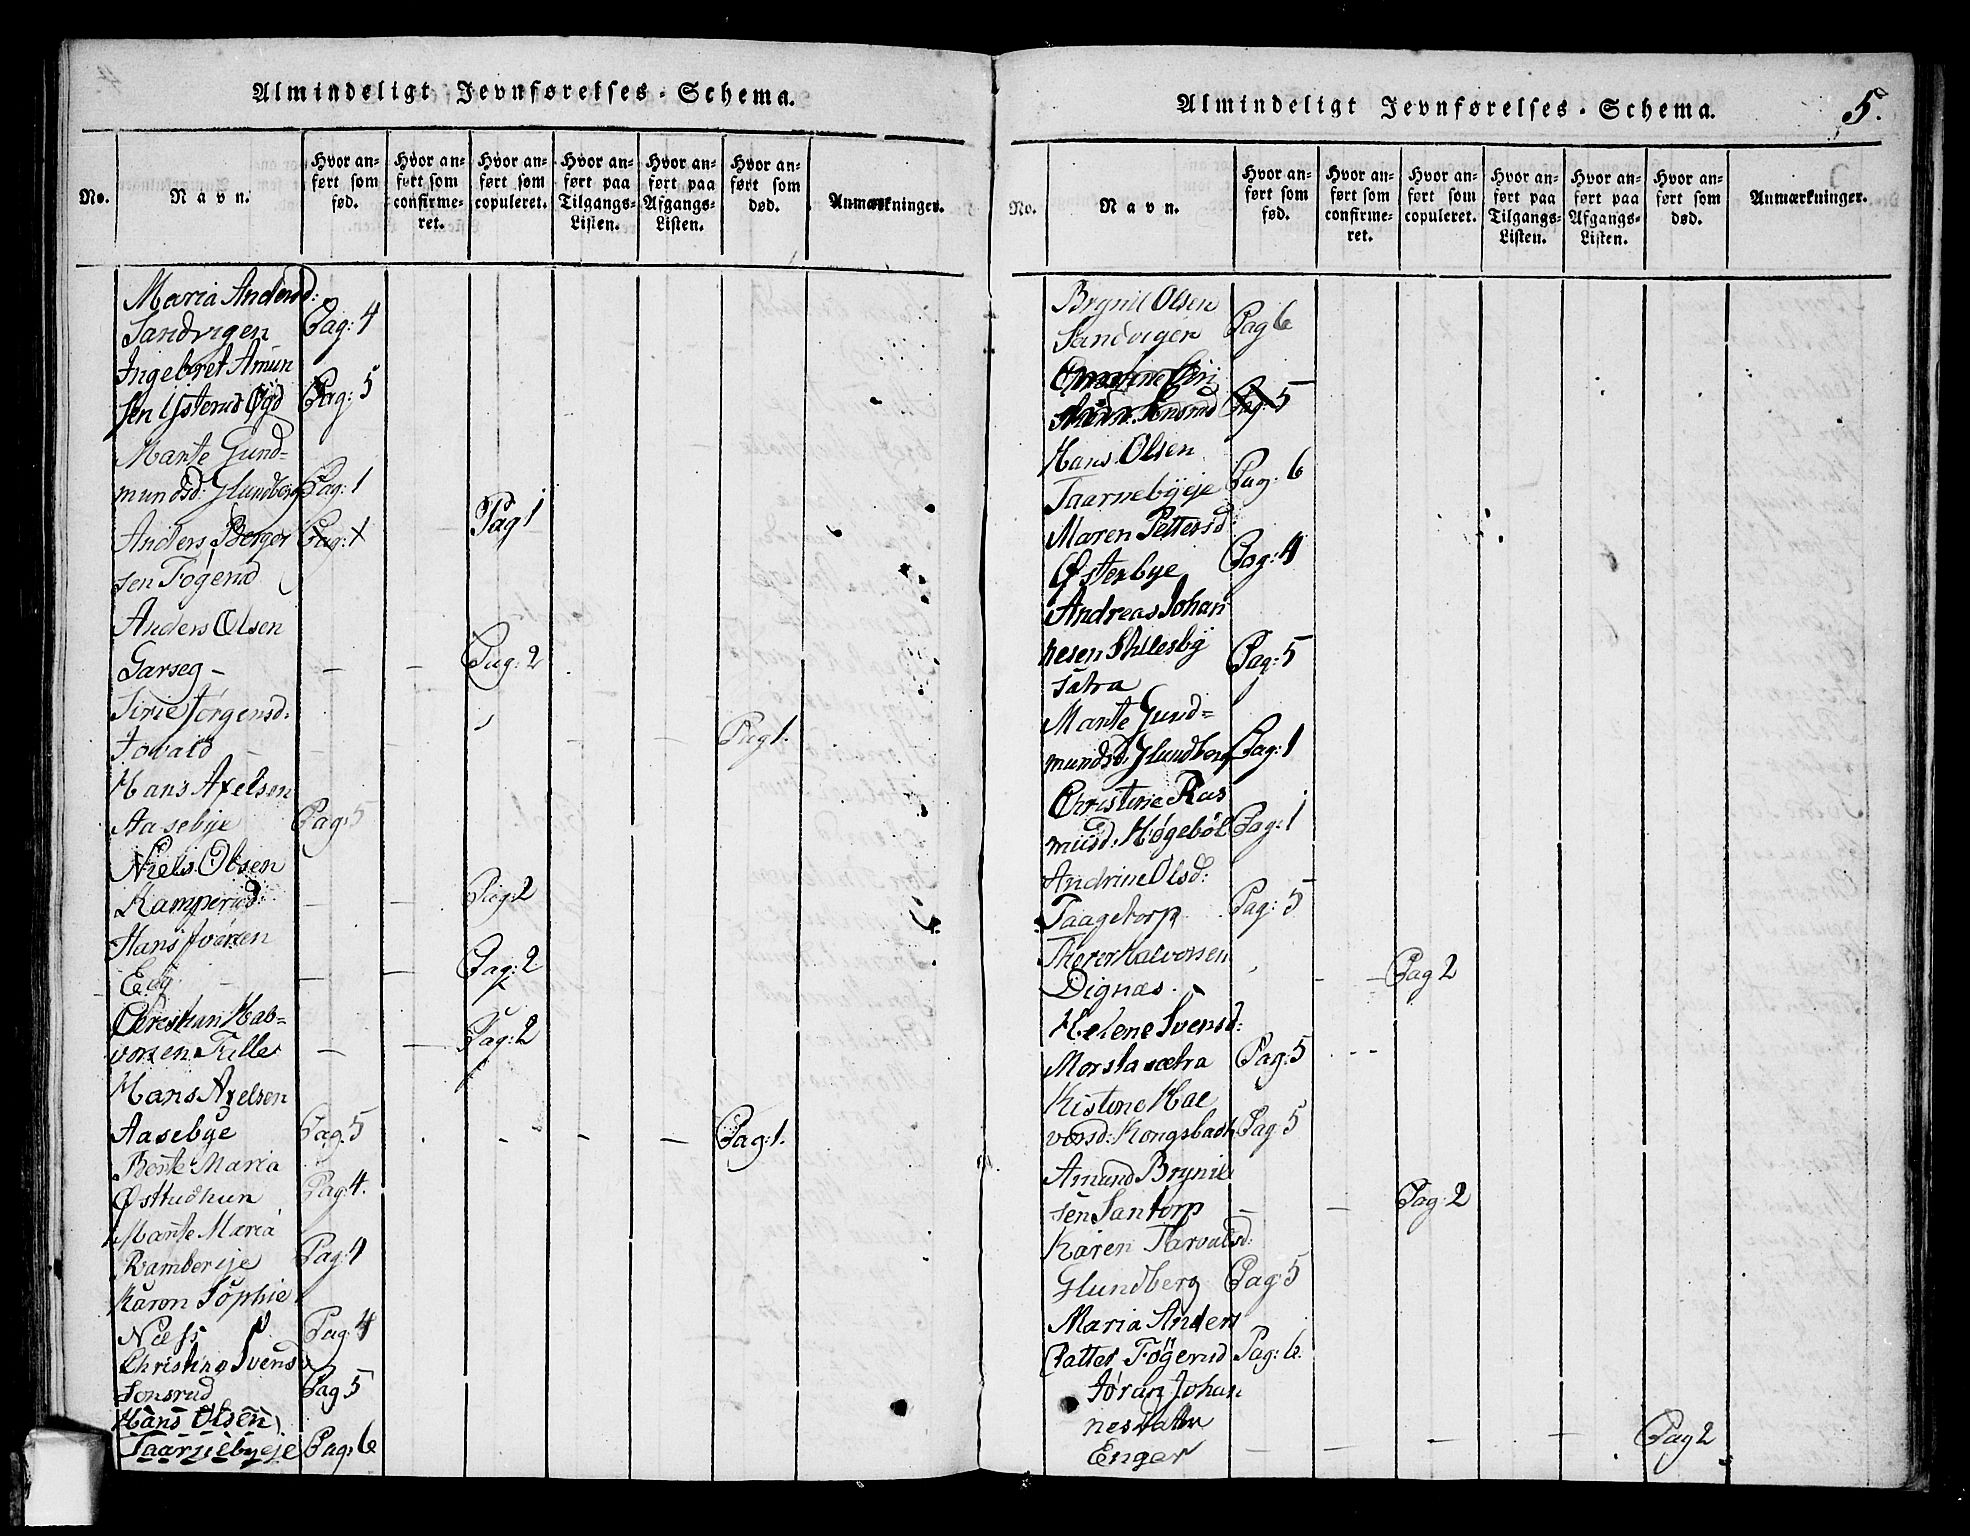 Almindeligt Jevnførelses-Schema.
No.
Navn.
Hvor an-
ført som
fød.
Hvor an-
ført som
confirme-
ret.
Hvor an-
ført som
copuleret.
Hvor an-
ført paa
Tilgangs-
Listen.
Hvor an-
ført paa
Afgangs-
Listen.
Hvor an-
ført som
død.
Anmærkninger.
Maria Andersd:
Sandvigen Pag: 4
Ingebret Amun
sen Pag: 5
Mante Gund-
mundsd: Glundberg Pag: 1
Anders Borger Pag: 1 Pag 1
sen Fogerud
Anders Olsen
Garseg - Pag: 2
Sirie Jorgensd.
Jovald Pag 1.
Hans Axelsen
Aasebye Pag: 5
Niels Olsen
Kamperud: Pag: 2
Hans Iversen
Eeg Pag: 2
Christian Hal-
vorsen Pag: 2
Hans Axelsen
Aasebye Pag. 5 Pag: 1.
Bente Maria
Pag: 4.
Mante Maria
Rambereje Pag: 4
Karen Sophie
Næss Pag: 4
Christine Svensd
Sonsrud Pag 5
Hans Olsen
Taarnebyeje Pag: 6
Almindeligt Jevnførelses-Schema.
5.
No.
Navn.
Hvor an-
ført som
fød.
Hvor an-
ført som
confirme-
ret.
Hvor an-
ført som
copuleret.
Hvor an-
ført paa
Tilgangs-
Listen.
Hvor an-
ført paa
Afgangs-
Listen.
Hvor an-
ført som
død.
Anmærkninger.
Brynil Olsen
Sandvigen Pag 6
Sonsrud Pag: 5
Hans Olsen
Taarnebyeje Pag: 6
Maren Pettersd:
Østerbye Pag: 4
Andreas Johan
nesen Pag: 5
Mante Gund-
mundsd. Glundberg Pag: 1
Christine Ras
musd: Høgeböl Pag: 1
Andrine Olsd:
Taagetorp Pag: 5
Thorer Halvorsen
Dignæs. Pag 2
Helene Svensd:
Morstasætra Pag: 5
Kistene Hal
vorsd: Kongsbach Pag: 5
Amund Brynil
sen Santorp Pag: 2
Karen Tarvalsd:
Glundberg Pag: 5
Maria Anders
Datter Fögerud Pag: 6.
Jøran Johan
nesdatter
Enger Pag 2